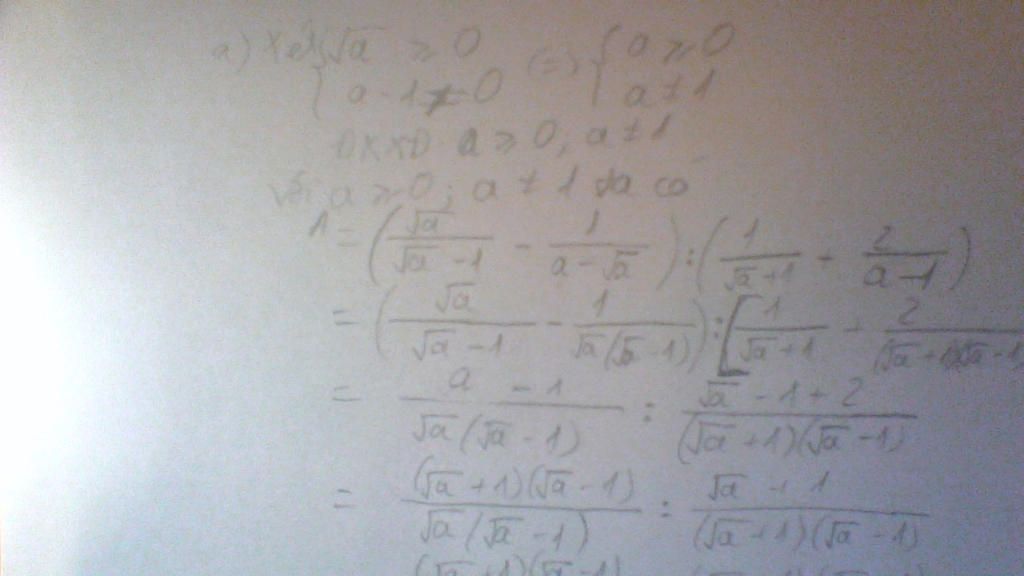 a) Xét { √a ≥ 0 (=) { a ≥ 0
a - 1 ≠ 0 a ≠ 1
ĐKXĐ a ≥ 0, a ≠ 1
Với a ≥ 0; a ≠ 1 ta có
1 = (√a/(√a - 1) - 1/(a - √a)) : (1/(√a + 1) + 2/(a - 1))
= (√a/(√a - 1) - 1/(√a(√a - 1))) : [1/(√a + 1) + 2/((√a + 1)(√a - 1)
= (a - 1)/(√a(√a - 1)) : (√a - 1 + 2)/((√a + 1)(√a - 1))
= ((√a + 1)(√a - 1))/(√a(√a - 1)) : (√a + 1)/((√a + 1)(√a - 1))
(√a + 1)(√a - 1)